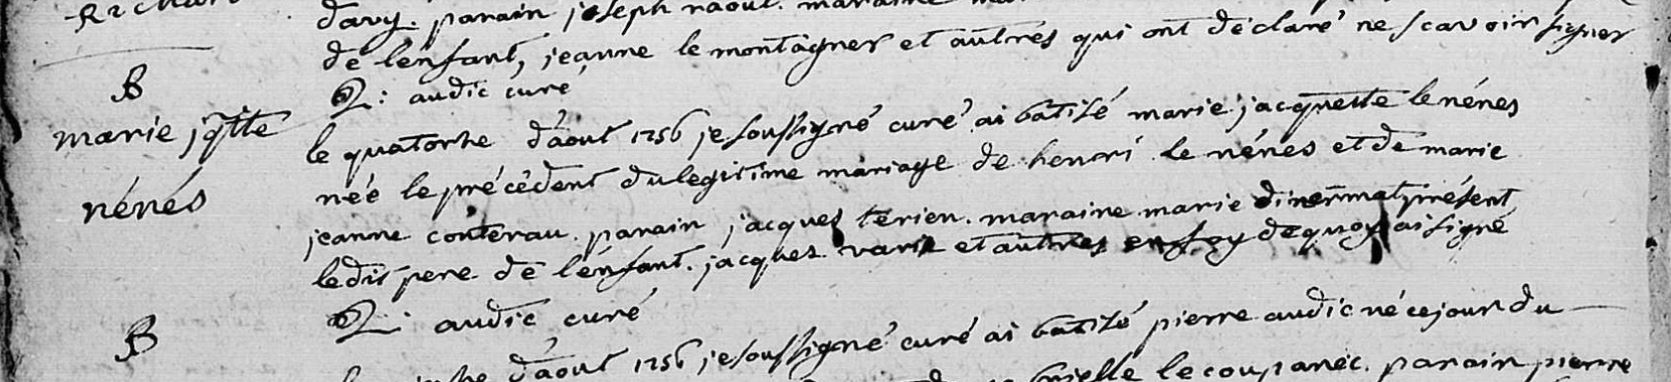 davy. parain joseph raoul. maraine
de lenfant, jeanne le montagner et autres qui ont declaré ne scavoir signer
L: audic curé
B
marie jqtte
nénés
le quatorse d'aout 1756 je soussigné curé ai batisé marie jacquette le nénes
née le précédent du legitime mariage de henri le nénes et de marie
jeanne conterau. parain jacques terien. maraine marie present
ledit pere de lenfant. jacques et autres en foy de quoy ai signé
L: audic curé
B
d'aout 1756 je soussigné curé ai batisé pierre audic né ce jour du
le coupanec. parain pierre